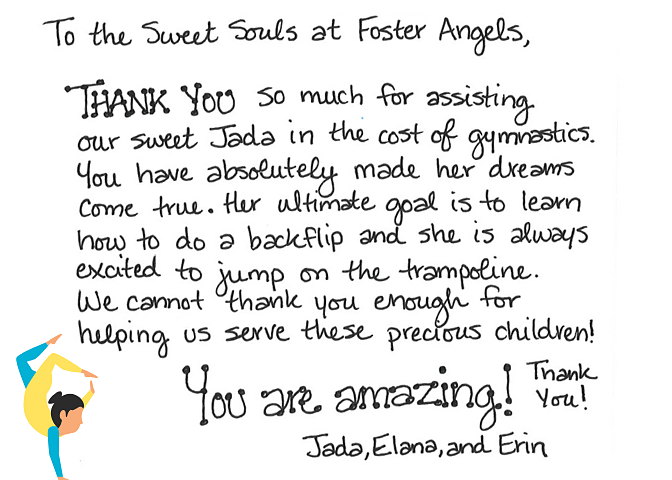 To the Sweet Souls at Foster Angels,
THANK YOU so much for assisting
our sweet Jada in the cost of gymnastics.
You have absolutely made her dreams
come true. Her ultimate goal is to learn
how to do a backflip and she is always
excited to jump on the trampoline.
We cannot thank you enough for
helping us serve these precious children!
You are amazing! Thank
You!
Jada, Elana, and Erin